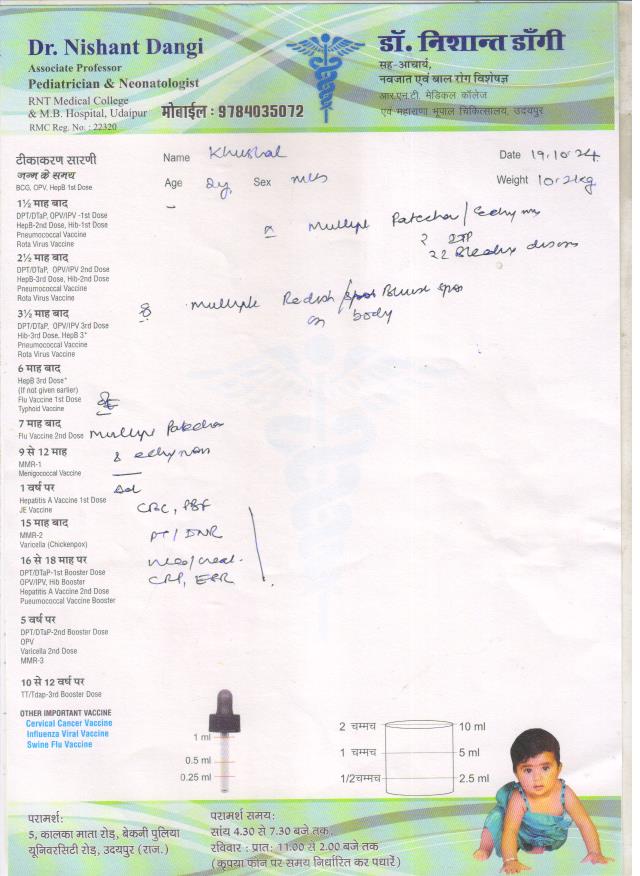 Dr. Nishant Dangi
Associate Professor
Pediatrician & Neonatologist
RNT Medical College
& M.B. Hospital, Udaipur
RMC Reg. No. : 22320
मोबाईल : 9784035072
डॉ. निशान्त डाँगी
सह-आचार्य,
नवजात एवं बाल रोग विशेषज्ञ
आर.एन.टी. मेडिकल कॉलेज
एवं महाराणा भूपाल चिकित्सालय, उदयपुर
Name Khushal
Date 19.10.24
Age 2y Sex
Weight 10.2kg
टीकाकरण सारणी
जन्म के समय
BCG, OPV, HepB 1st Dose
1½ माह बाद
DPT/DTaP, OPV/IPV -1st Dose
HepB-2nd Dose, Hib-1st Dose
Pneumococcal Vaccine
Rota Virus Vaccine
2½ माह बाद
DPT/DTaP, OPV/IPV 2nd Dose
HepB-3rd Dose, Hib-2nd Dose
Pneumococcal Vaccine
Rota Virus Vaccine
3½ माह बाद
DPT/DTaP, OPV/IPV 3rd Dose
Hib-3rd Dose, HepB 3*
Pneumococcal Vaccine
Rota Virus Vaccine
6 माह बाद
HepB 3rd Dose*
(If not given earlier)
Flu Vaccine 1st Dose
Typhoid Vaccine
7 माह बाद
Flu Vaccine 2nd Dose
9 से 12 माह
MMR-1
Menigococcal Vaccine
1 वर्ष पर
Hepatitis A Vaccine 1st Dose
JE Vaccine
15 माह बाद
MMR-2
Varicella (Chickenpox)
16 से 18 माह पर
DPT/DTaP-1st Booster Dose
OPV/IPV, Hib Booster
Hepatitis A Vaccine 2nd Dose
Pueumococcal Vaccine Booster
5 वर्ष पर
DPT/DTaP-2nd Booster Dose
OPV
Varicella 2nd Dose
MMR-3
10 से 12 वर्ष पर
TT/Tdap-3rd Booster Dose
OTHER IMPORTANT VACCINE
Cervical Cancer Vaccine
Influenza Viral Vaccine
Swine Flu Vaccine
Multiple
? ITP
Bleeding
Multiple Redish
on body
Multiple
CBC, PBF
PT/INR
CRP, ESR
1 ml
0.5 ml
0.25 ml
2 चम्मच 10 ml
1 चम्मच 5 ml
1/2चम्मच 2.5 ml
परामर्श:
5, कालका माता रोड़, बेकनी पुलिया
यूनिवरसिटी रोड़, उदयपुर (राज.)
परामर्श समय:
सांय 4.30 से 7.30 बजे तक,
रविवार : प्रात: 11.00 से 2.00 बजे तक
(कृपया फोन पर समय निर्धारित कर पधारें)